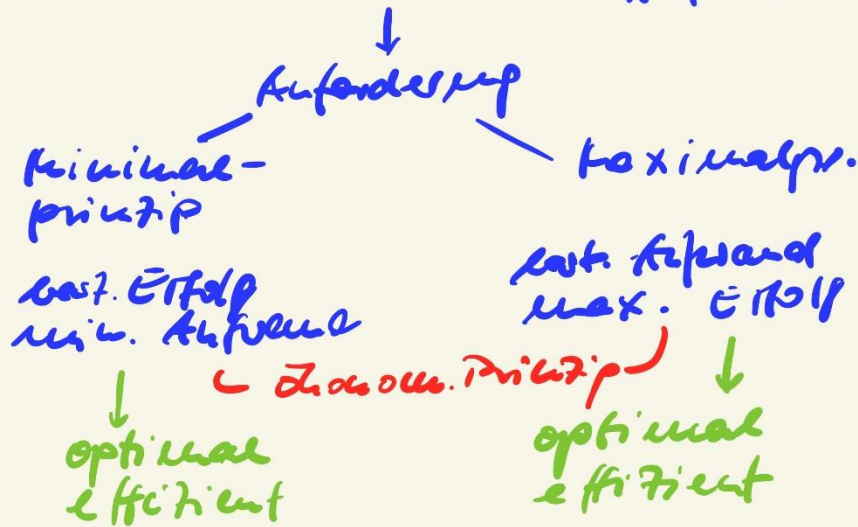 Anforderung
Minimal-
prinzip
Maximalpr.
best. Erfolg
min. Aufwand
best. Aufwand
max. Erfolg
Ökonom. Prinzip
optimal
effizient
optimal
effizient